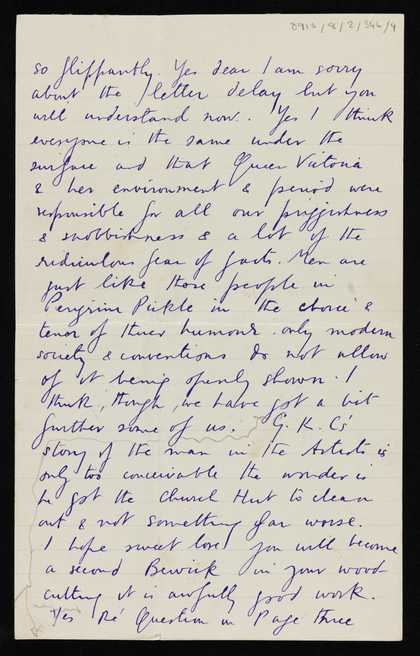 8916/8/2/346/4
so flippantly. Yes dear I am sorry
about the letter delay but you
will understand now. Yes I think
everyone is the same under the
surface and that Queen Victoria
& her environment & period were
responsible for all our priggishness
& snobbishness & a lot of the
ridiculous fear of facts. Men are
just like those people in
Peregrine Pickle in the choice &
tenor of their humour only modern
society & conventions do not allow
of it being openly shown. I
think, though, we have got a bit
further some of us. G.K.C's
story of the man in the Artists is
only too conceivable the wonder is
he got the Church Hut to clean
out & not something far worse.
I hope sweet love you will become
a second Bewick in your wood-
cutting it is awfully good work.
Yes Re Question in Page three